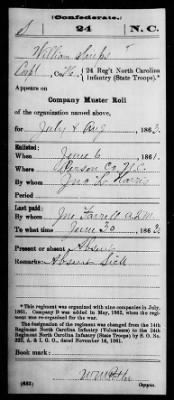 (Confederate.)
S 24 N.C.
William
Capt, Co. 24 Reg't North Carolina
Infantry (State Troops).*
Appears on
Company Muster Roll
of the organization named above,
for July & Aug, 1863.
Enlisted:
When June 6, 1861.
Where Person Co N.C.
By whom Jno
Period
Last paid:
By whom Jno Farrell
To what time June 30, 1863.
Present or absent Absent
Remarks: Absent Sick
*This regiment was organized with nine companies in July,
1861. Company B was added in May, 1862, when the regiment
was re-organized for the war.
The designation of the regiment was changed from the 14th
Regiment North Carolina Infantry (Volunteers) to the 24th
Regiment North Carolina Infantry (State Troops) by S. O. No.
222, A. & I. O. dated November 14, 1861.
Book mark:
(642)
Copyist.